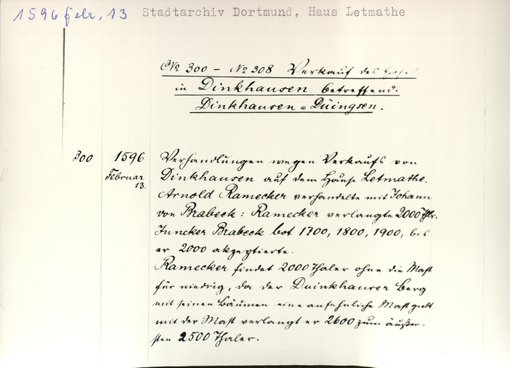 1596 febr. 13 Stadtarchiv Dortmund, Haus Letmathe
No 300 - No 308 Verkauf des Hofes
in Dinkhausen betreffend.
Dinkhausen = Düingsen.
300 1596 Verhandlungen wegen Verkaufs von
Februar Dinkhausen auf dem Hause Letmathe.
13. Arnold Ramecker verhandelte mit Johann
von Brabeck: Ramecker verlangte 2000 Thlr.
Juncker Brabeck bot 1700, 1800, 1900, bis
er 2000 akzeptierte.
Ramecker findet 2000 Thaler ohne die Mast
für niedrig, da der Duinkhauser Berg
mit seinen Bäumen eine ansehnliche Mast giebt
mit der Mast verlangt er 2600 zum äußer-
sten 2500 Thaler.